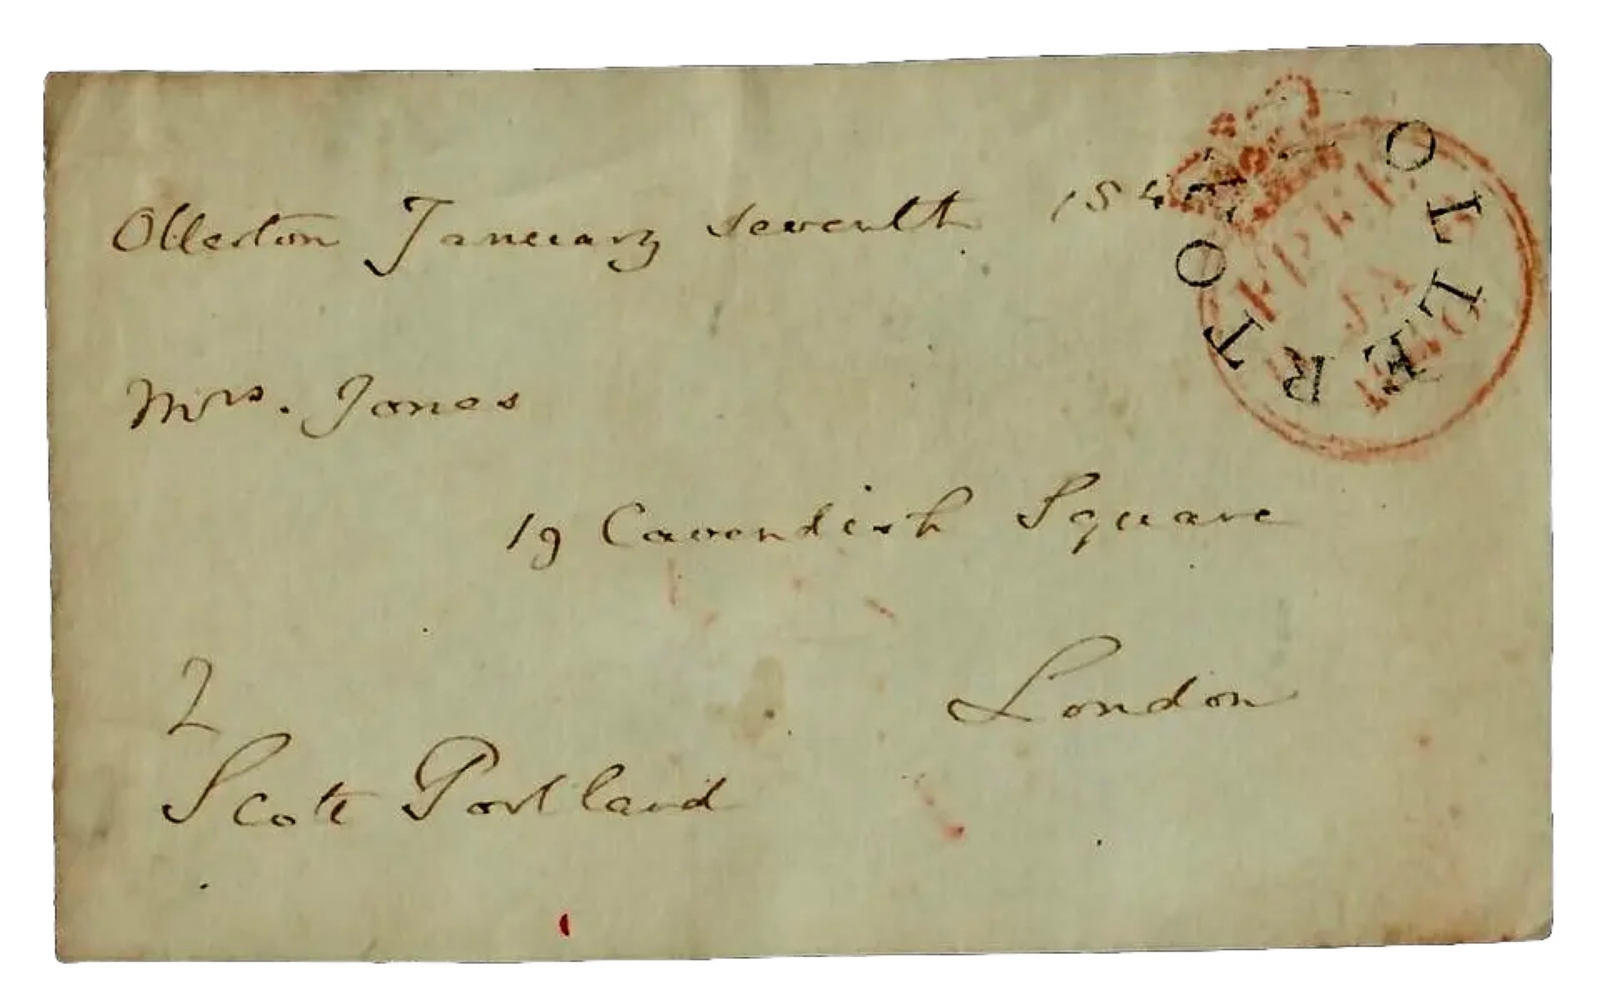 Ollerton January seventh 184
Mrs. Jones
19 Cavendish Square
London
2
Scott Portland
OLLERTON
FREE
JA
1840